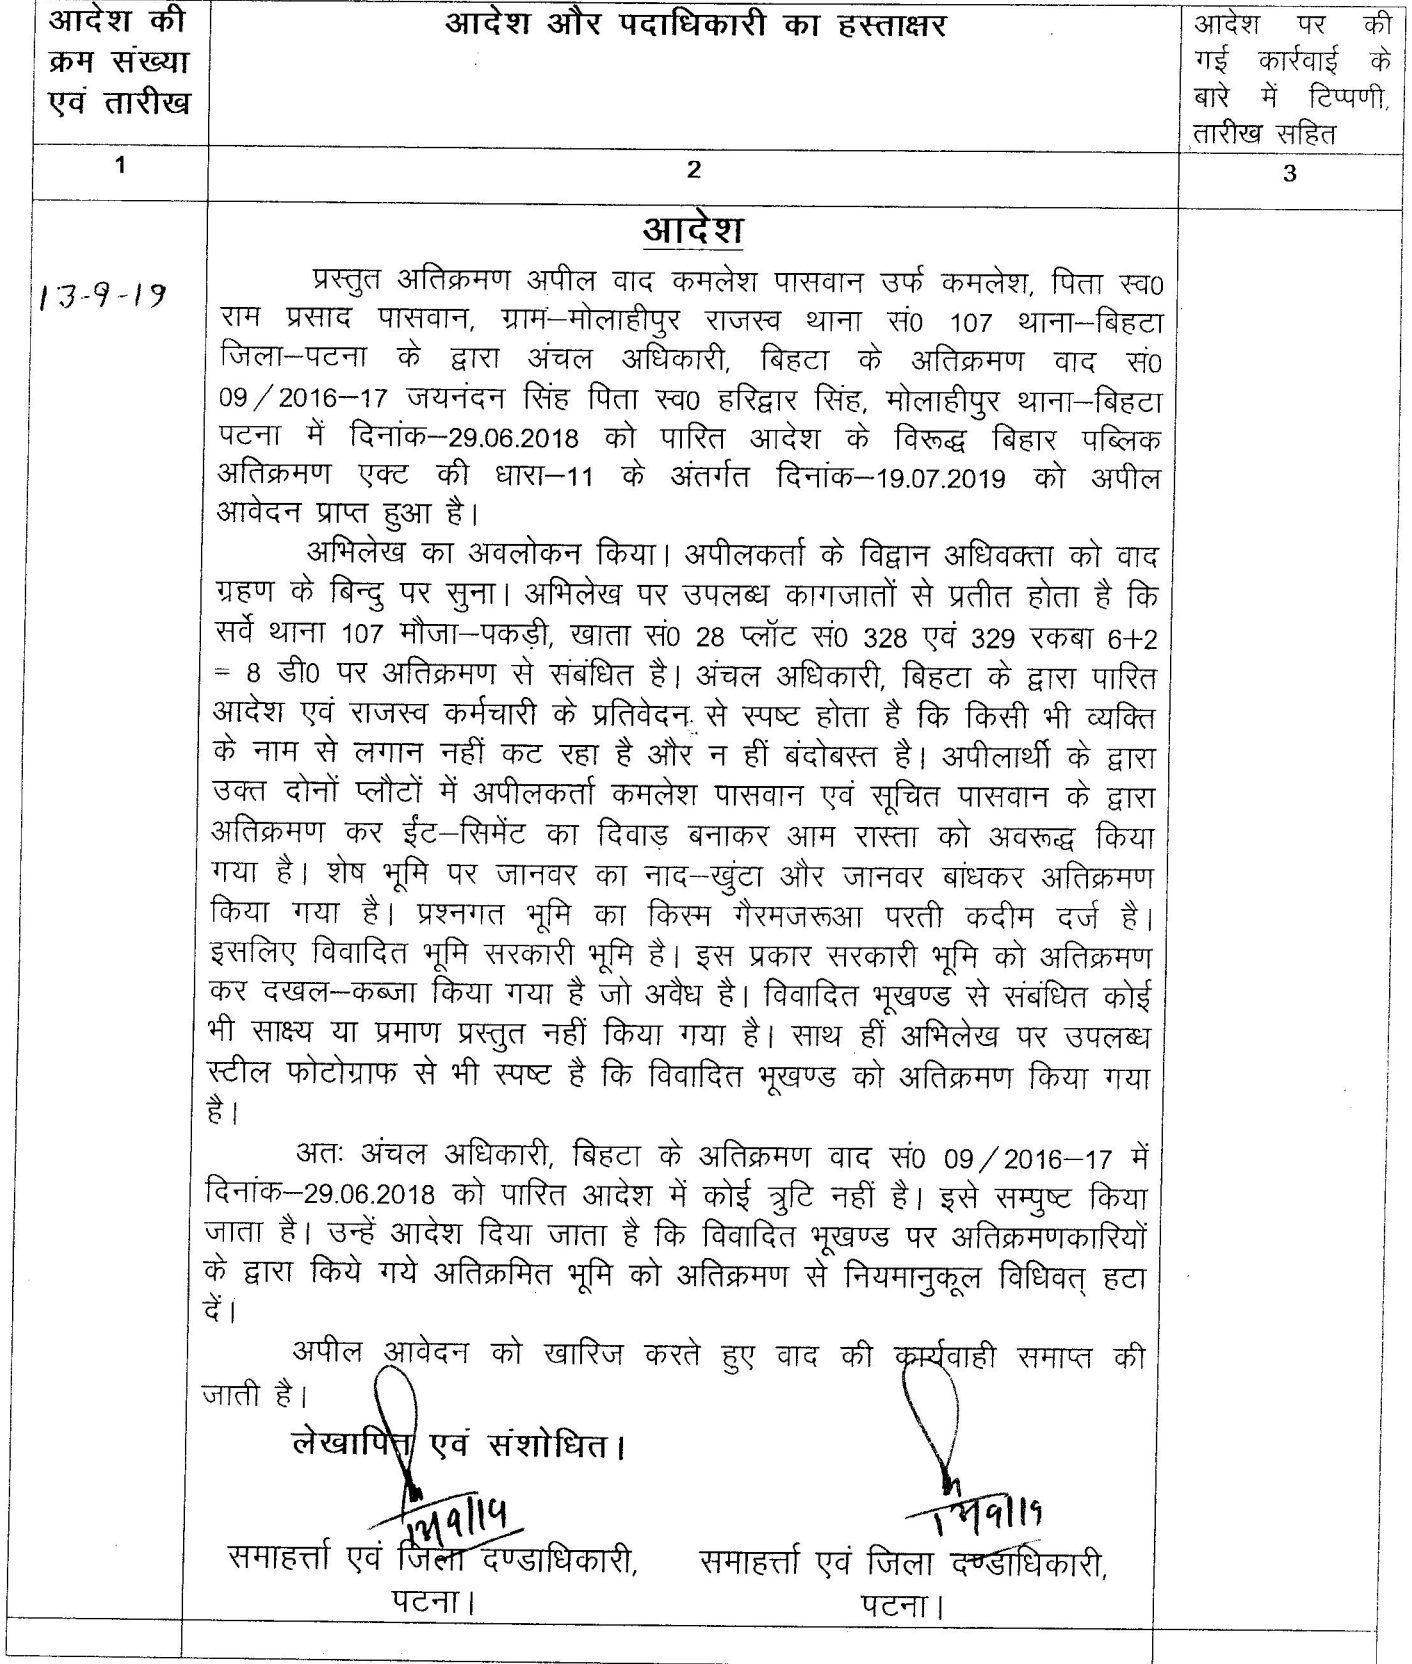 आदेश की
क्रम संख्या
एवं तारीख
आदेश और पदाधिकारी का हस्ताक्षर
आदेश पर की
गई कार्रवाई के
बारे में टिप्पणी,
तारीख सहित
1
2
3
आदेश
13-9-19
प्रस्तुत अतिक्रमण अपील वाद कमलेश पासवान उर्फ कमलेश, पिता स्व0
राम प्रसाद पासवान, ग्राम–मोलाहीपुर राजस्व थाना सं0 107 थाना–बिहटा
जिला–पटना के द्वारा अंचल अधिकारी, बिहटा के अतिक्रमण वाद सं0
09/2016–17 जयनंदन सिंह पिता स्व0 हरिद्वार सिंह, मोलाहीपुर थाना–बिहटा
पटना में दिनांक–29.06.2018 को पारित आदेश के विरूद्ध बिहार पब्लिक
अतिक्रमण एक्ट की धारा–11 के अंतर्गत दिनांक–19.07.2019 को अपील
आवेदन प्राप्त हुआ है।
अभिलेख का अवलोकन किया। अपीलकर्ता के विद्वान अधिवक्ता को वाद
ग्रहण के बिन्दु पर सुना। अभिलेख पर उपलब्ध कागजातों से प्रतीत होता है कि
सर्वे थाना 107 मौजा–पकड़ी, खाता सं0 28 प्लॉट सं0 328 एवं 329 रकबा 6+2
= 8 डी0 पर अतिक्रमण से संबंधित है। अंचल अधिकारी, बिहटा के द्वारा पारित
आदेश एवं राजस्व कर्मचारी के प्रतिवेदन से स्पष्ट होता है कि किसी भी व्यक्ति
के नाम से लगान नहीं कट रहा है और न हीं बंदोबस्त है। अपीलार्थी के द्वारा
उक्त दोनों प्लौटों में अपीलकर्ता कमलेश पासवान एवं सूचित पासवान के द्वारा
अतिक्रमण कर ईंट–सिमेंट का दिवाड़ बनाकर आम रास्ता को अवरूद्ध किया
गया है। शेष भूमि पर जानवर का नाद–खुंटा और जानवर बांधकर अतिक्रमण
किया गया है। प्रश्नगत भूमि का किस्म गैरमजरूआ परती कदीम दर्ज है।
इसलिए विवादित भूमि सरकारी भूमि है। इस प्रकार सरकारी भूमि को अतिक्रमण
कर दखल–कब्जा किया गया है जो अवैध है। विवादित भूखण्ड से संबंधित कोई
भी साक्ष्य या प्रमाण प्रस्तुत नहीं किया गया है। साथ हीं अभिलेख पर उपलब्ध
स्टील फोटोग्राफ से भी स्पष्ट है कि विवादित भूखण्ड को अतिक्रमण किया गया
है।
अतः अंचल अधिकारी, बिहटा के अतिक्रमण वाद सं0 09/2016–17 में
दिनांक–29.06.2018 को पारित आदेश में कोई त्रुटि नहीं है। इसे सम्पुष्ट किया
जाता है। उन्हें आदेश दिया जाता है कि विवादित भूखण्ड पर अतिक्रमणकारियों
के द्वारा किये गये अतिक्रमित भूमि को अतिक्रमण से नियमानुकूल विधिवत् हटा
दें।
अपील आवेदन को खारिज करते हुए वाद की कार्यवाही समाप्त की
जाती है।
लेखापित एवं संशोधित।
समाहर्त्ता एवं जिला दण्डाधिकारी,
पटना।
समाहर्त्ता एवं जिला दण्डाधिकारी,
पटना।